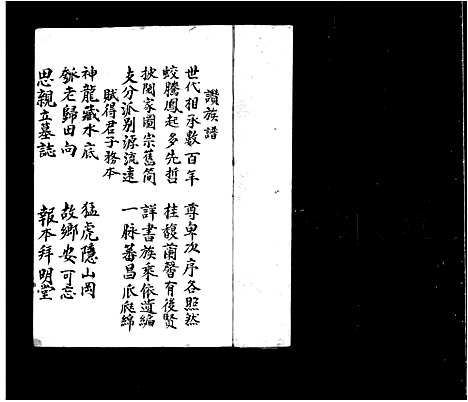 讚族譜
世代相承數百年 尊卑次序各照然
蛟騰鳳起多先哲 桂馥蘭馨有後賢
披閱家圖宗舊简 詳書族乘依遺編
支分派別源流遠 一脉蕃昌瓜瓞綿
賦得君子務本
神龍藏水底 猛虎隱山岡
年老歸田向 故鄉安可忘
思親立墓誌 報本拜明堂